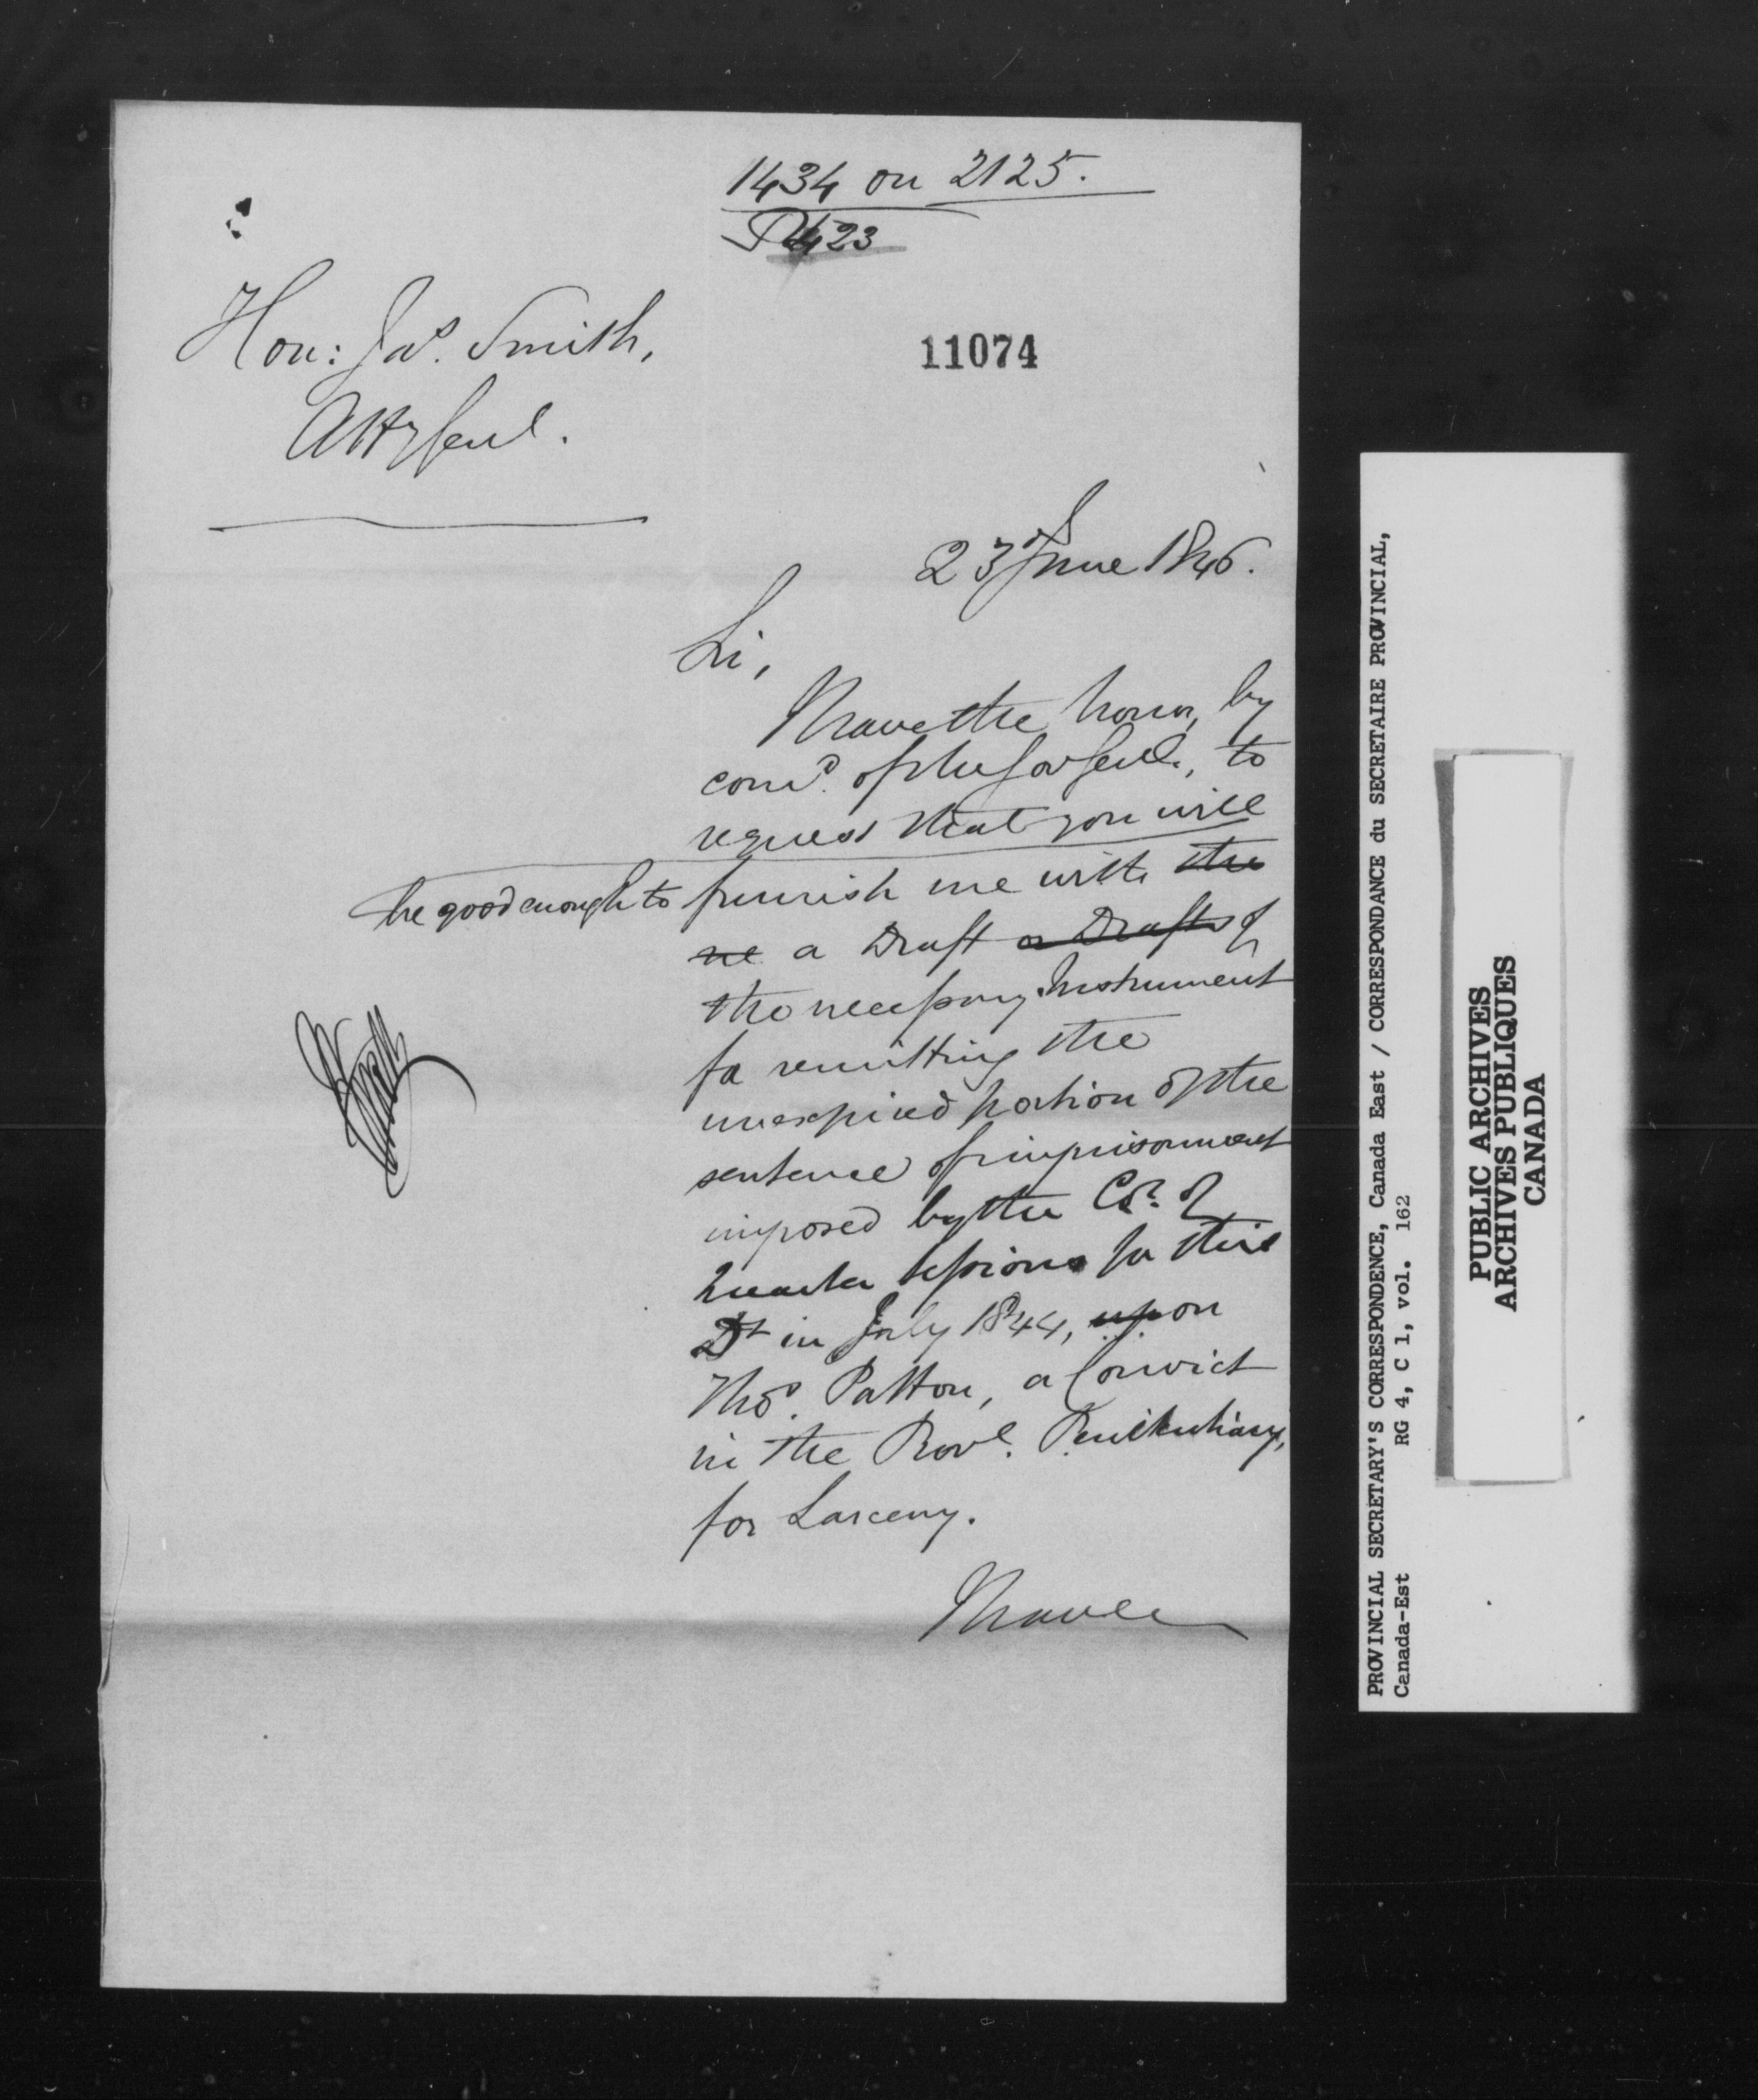 1434 on 2125.
P423
Hon: Jas. Smith,
Atty Genl.
11074
23d June 1846.
Sir,
I have the honor, by
comd. of the Gov Genl., to
request that you will
be good enough to furnish me with the
a Draft or Drafts of
the necessary Instrument
for remitting the
unexpired portion of the
sentence of imprisonment
imposed by the Ct. of
Quarter Sessions for this
Dt in July 1844, upon
Thos. Patton, a Convict
in the Provl. Penitentiary,
for Larceny.
I have &c
PROVINCIAL SECRETARY'S CORRESPONDENCE, Canada East / CORRESPONDANCE du SECRETAIRE PROVINCIAL,
Canada-Est RG 4, C 1, vol. 162
PUBLIC ARCHIVES
ARCHIVES PUBLIQUES
CANADA